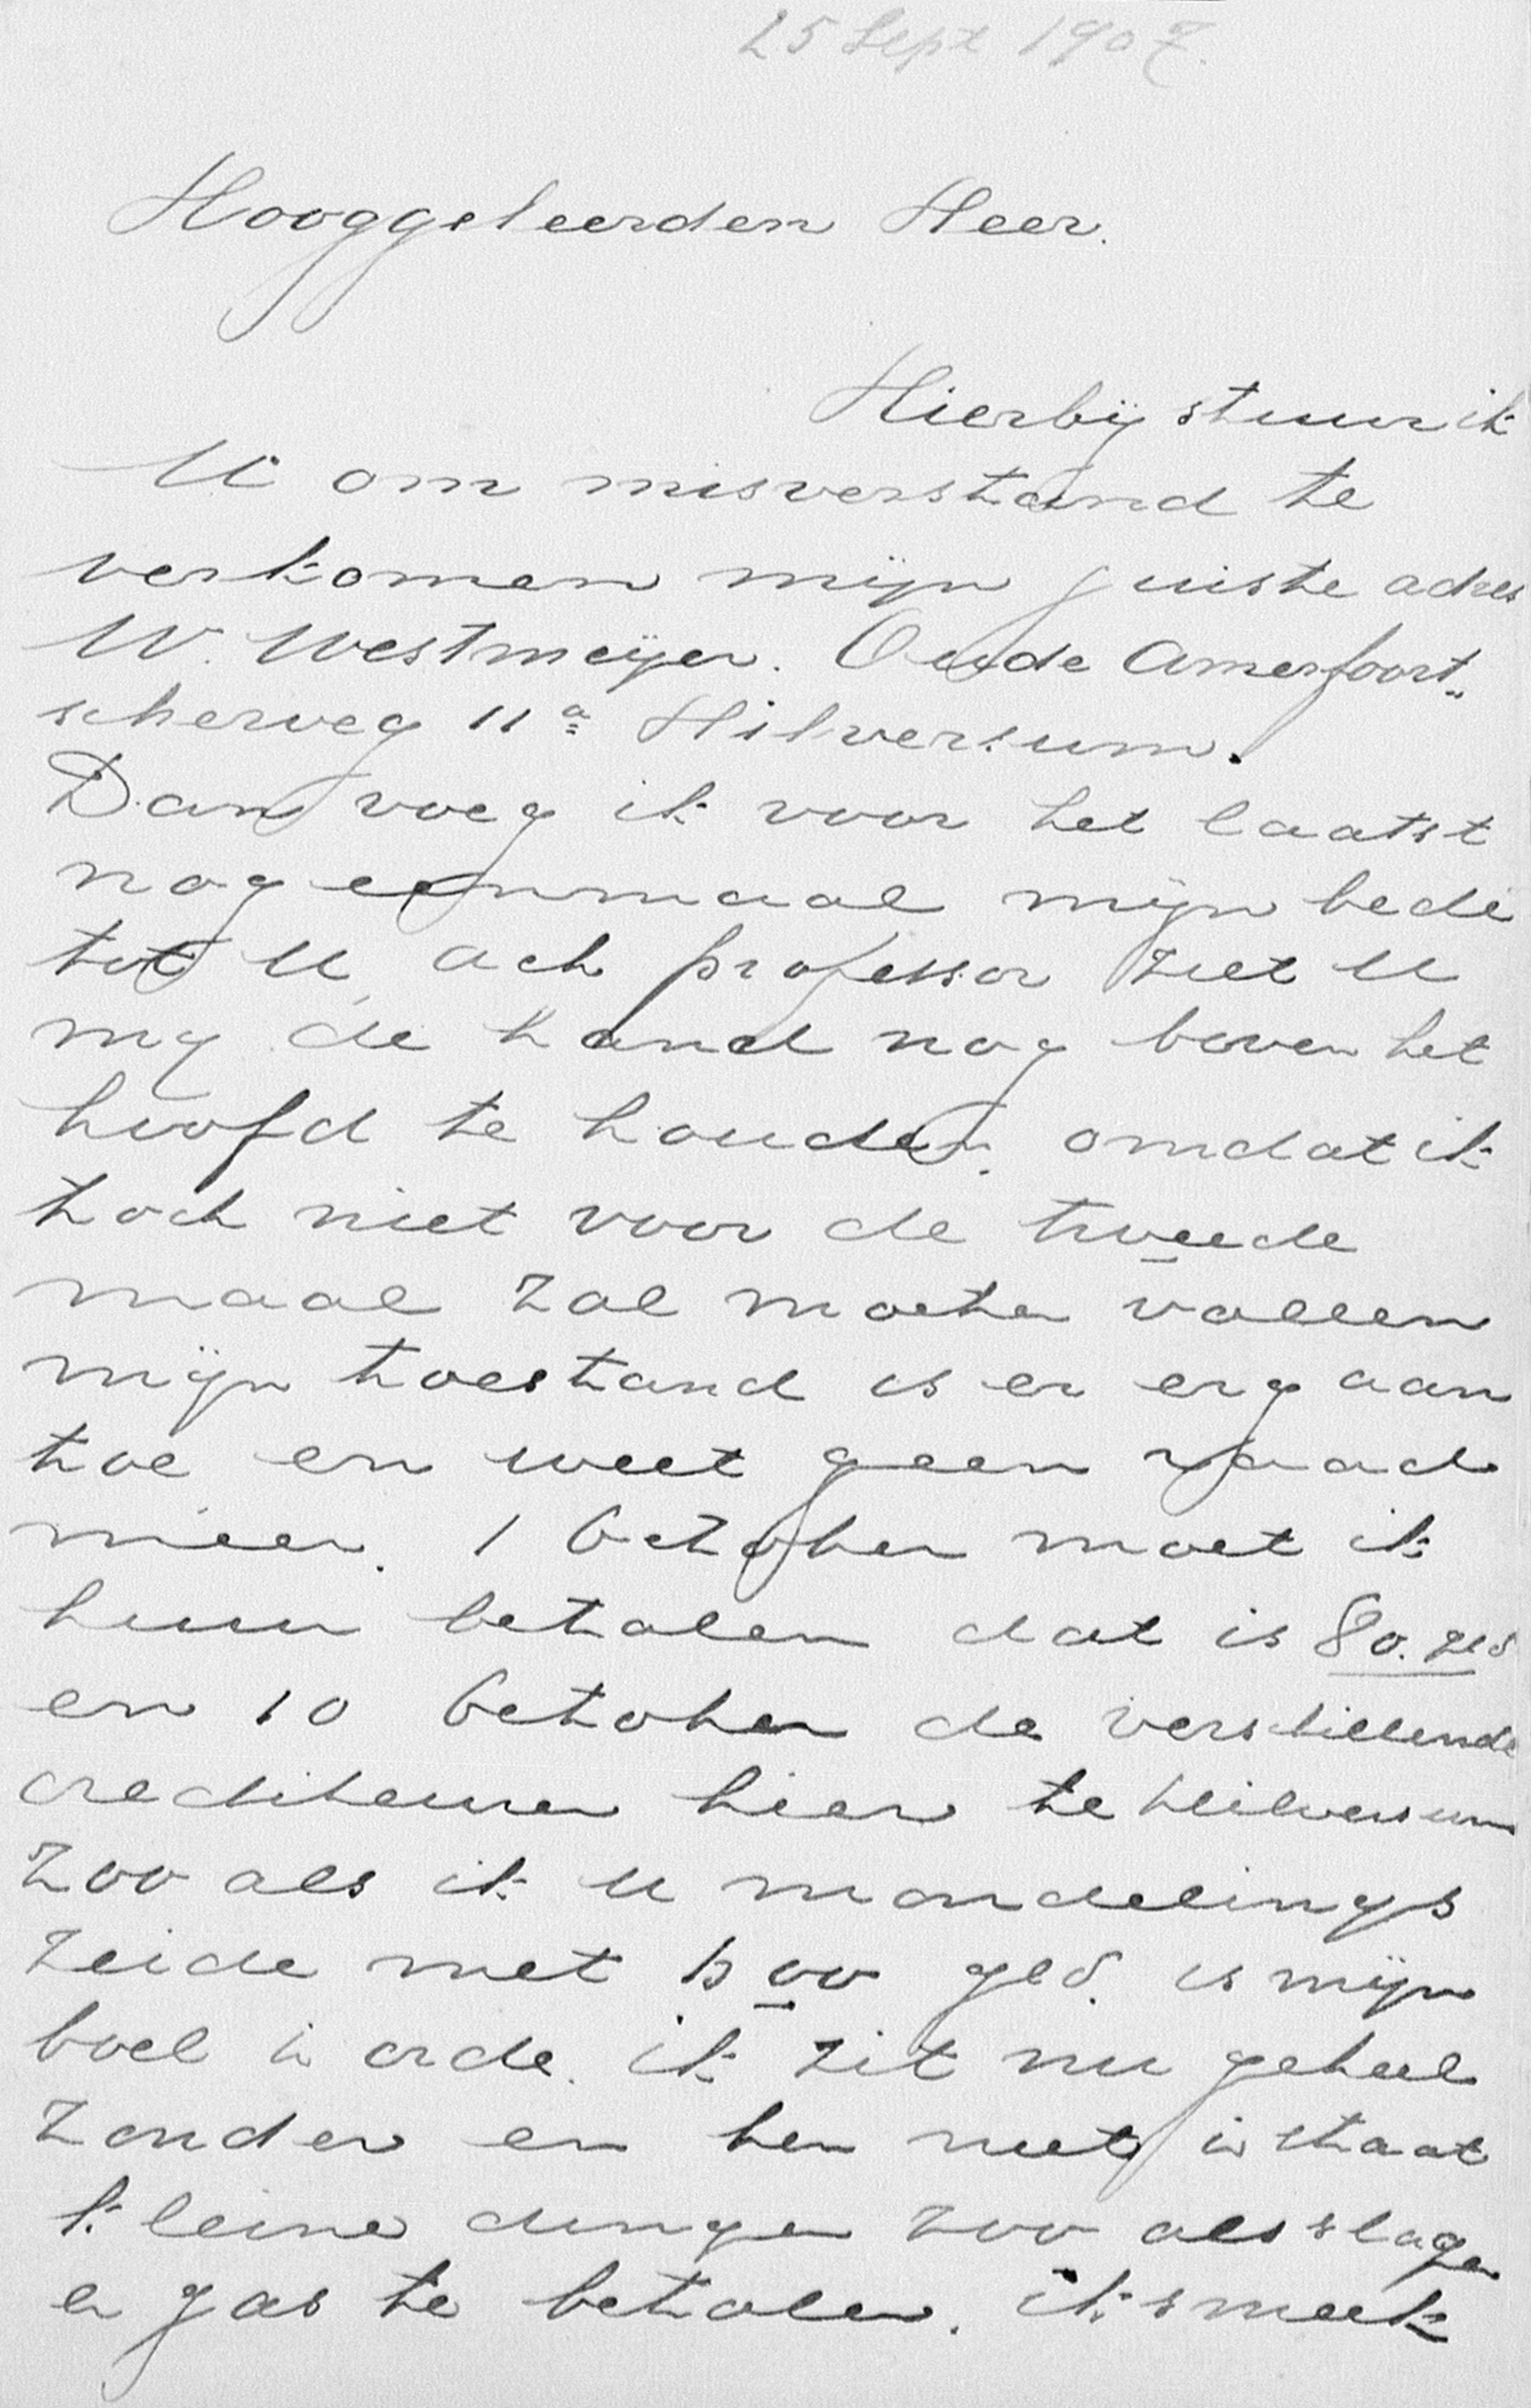 25 Sept 1907.
Hooggeleerden Heer.
Hierbij stuur ik
U om misverstand te
verkomen mijn juiste adres
W. Westmeijer. Oude Amersfoort„
scherweg 11a Hilversum.
Dan voeg ik voor het laatst
nog eenmaal mijn bede
tot U, ach professor ziet U
my de hand nog boven het
hoofd te houden. omdat ik
toch niet voor de tweede
maal zal moeten vallen
mijn toestand is er erg aan
toe en weet geen raad
meer. 1 October moet ik
huur betalen dat is 80. gld
en 10 October de verschillende
crediteuren hier te Hilversum
zoo als ik U mondelings
zeide met 500 gld. is mijn
boel in orde. ik zit nu geheel
zonder en ben niet in staat
kleine dingen zoo als slager
en gas te betalen. ik smeek